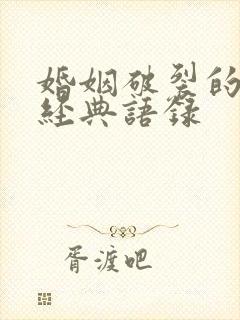 婚姻破裂的
經典語錄
胥渡吧